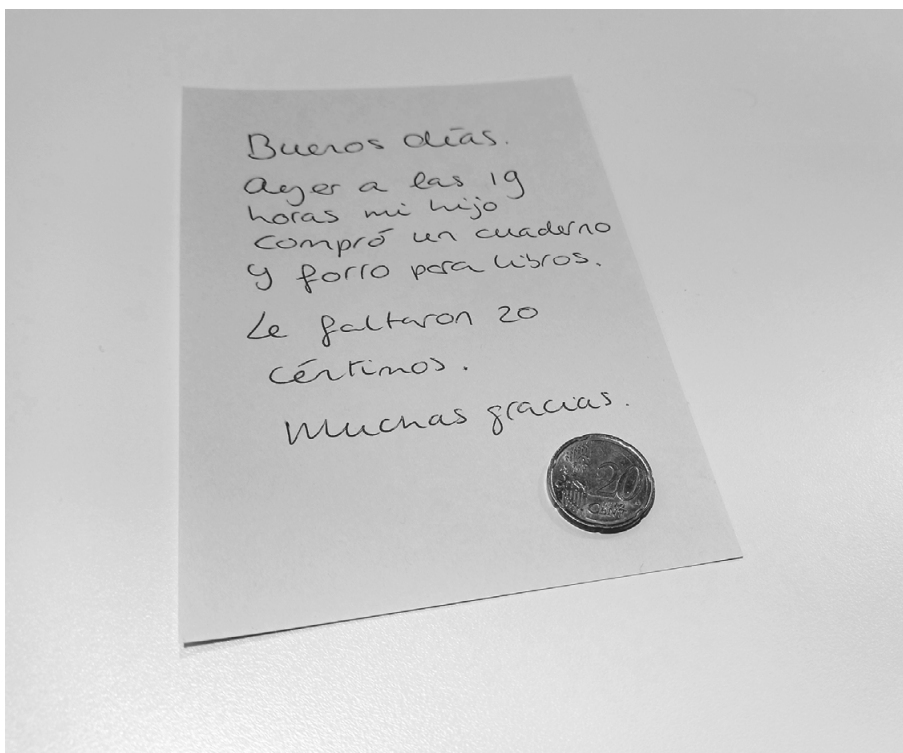 Buenos días.
Ayer a las 19
horas mi hijo
compró un cuaderno
y forro para libros.
Le faltaron 20
céntimos.
Muchas gracias.
20